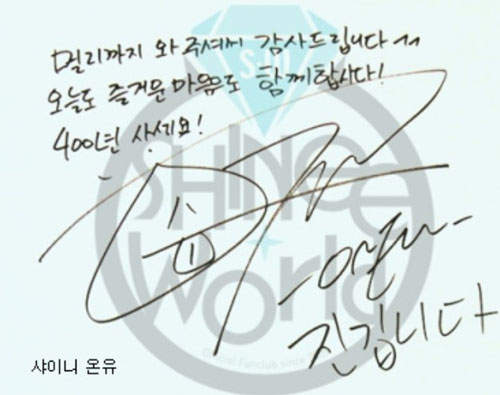 멀리까지 와 주셔서 감사드립니다^^
오늘도 즐거운 마음으로 함께합시다!
400년 사세요!
SHINee
World
Official Fanclub since
-온유-
진깁니다
샤이니 온유